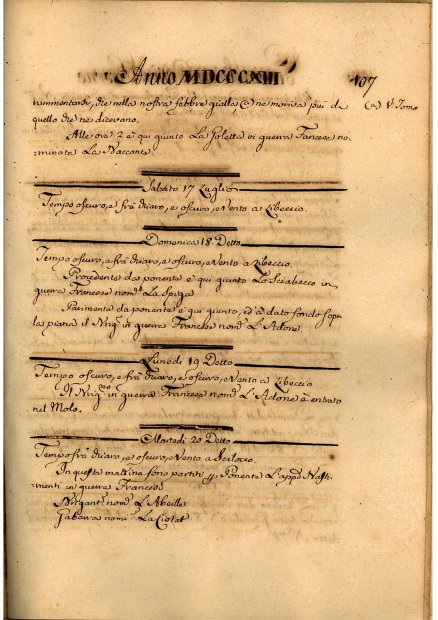 Anno MDCCCXIII 107
rammentarsi, che nella nostra febbre gialla (a) ne moriva più di (a) V. Tomo
quello che ne dicevano.
Alle ore 2 è qui giunto La Goletta in guerra Francese no-
minata La
Sabato 17 Luglio
Tempo oscuro, e frà chiaro, e oscuro, e Vento a Libeccio.
Domenica 18 Detto
Tempo oscuro, e frà chiaro, e oscuro, e Vento a Libeccio.
Procedente da ponente è qui giunto Lo Sciabecco in
guerra Francese nom.º La
Parimente da ponente è qui giunto, ed à dato fondo sopr.
la piana il Brig.º in guerra Francese nom.º L'Adone.
Lunedì 19 Detto
Tempo oscuro, e frà chiaro, e oscuro, e Vento a Libeccio
Il Brig.no in guerra Francese nom.º L'Adone è entrato
nel Molo.
Martedì 20 Detto
Tempo frà chiaro, e oscuro, e Vento a Scilocco.
In questa mattina sono partiti p. Ponente L'app.i Basti-
-menti in guerra Francesi
Brigant.º nom.º L'Abeille
Gabarra nom.ª La Ciotat